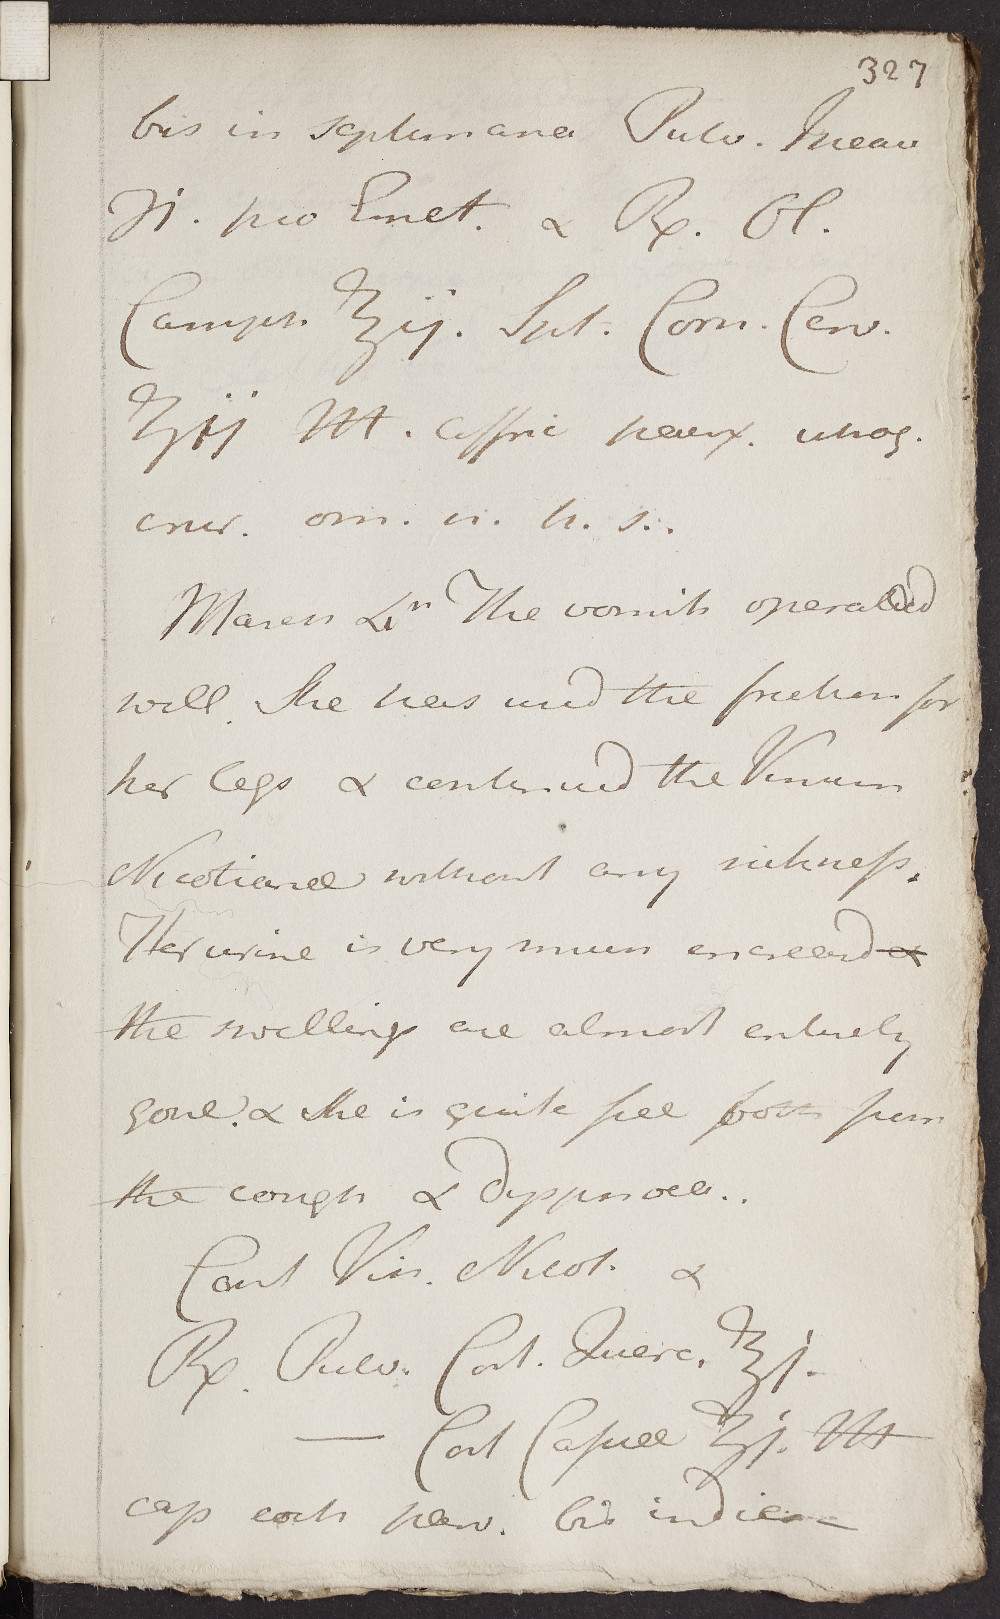 327
bis in septimanâ Pulv. Ipecac
ʒi. pro Emet. & ℞. Ol.
Camph ℥ij. Spt. Corn. Cerv.
℥ij M. affric parox. utrog.
crur. om. n. h. s..
March 4th The vomits operated
well. She has used the friction for
her legs & continued the Vinum
Nicotianæ without any sickness.
Her urine is very much encreased &
the swellings are almost entirely
gone. & she is quite free both from
the cough & dyspnoea..
Cont Vin. Nicot. &
℞. Pulv. Cort. Querc. ℥j.
— Cort Casuæ ʒj. M
cap coch parv. bis in die